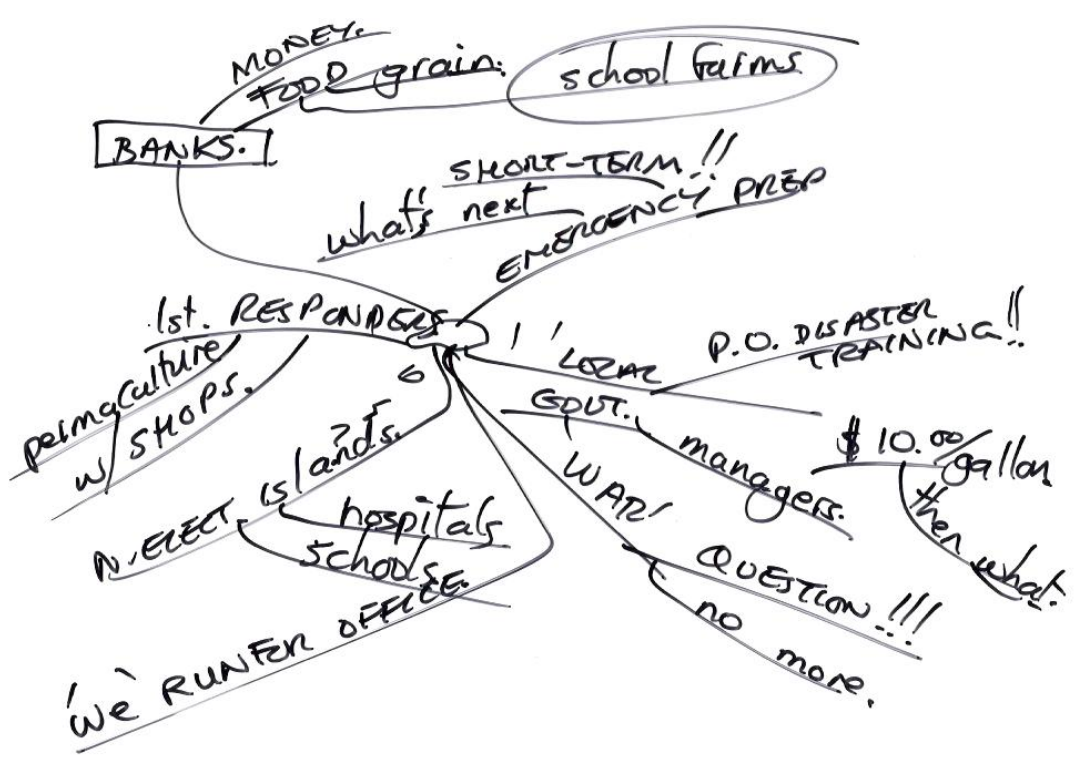 MONEY.
FOOD grain.
school farms
BANKS.
SHORT-TERM!!
what's next
EMERGENCY PREP
1st. RESPONDERS
permaculture
w/ SHOPS.
6
1
LOCAL
P.O. DISASTER
TRAINING!!
GOVT.
managers.
$10.00/
gallon
then what.
WAR!
QUESTION!!!
no more.
islands.
?
hospitals
schools
'We' RUN FOR OFFICE.